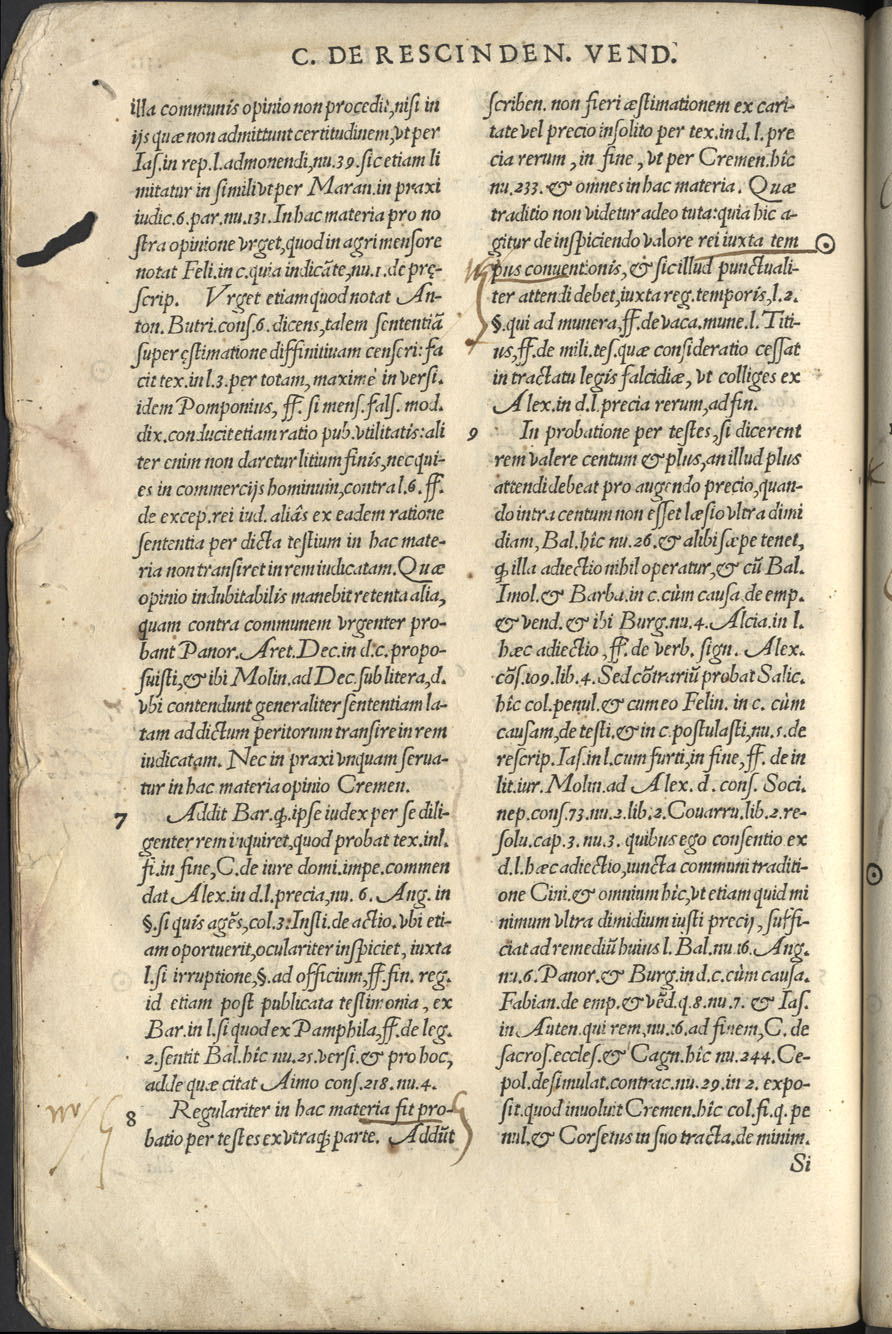 C. DE RESCINDEN. VEND.
illa communis opinio non procedit, nisi in
ijs quæ non admittunt certitudinem, vt per
Ias. in rep. l. admonendi, nu. 39. sic etiam li
mitatur in simili vt per Maran. in praxi
iudic. 6. par. nu. 131. In hac materia pro no
stra opinione vrget, quod in agrimensore
notat Feli. in c. quia indicāte, nu. 1. de prę-
scrip. Vrget etiam quod notat An-
ton. Butri. cons. 6. dicens, talem sententiā
super ęstimatione diffinitiuam censeri: fa
cit tex. in l. 3. per totam, maximè in versi.
idem Pomponius, ff. si mens. fals. mod.
dix. conducit etiam ratio pub. vtilitatis: ali
ter enim non daretur litium finis, nec qui-
es in commercijs hominum, contra l. 6. ff.
de excep. rei iud. aliâs ex eadem ratione
sententia per dicta testium in hac mate-
ria non transiret in rem iudicatam. Quæ
opinio indubitabilis manebit retenta alia,
quam contra communem vrgenter pro-
bant Panor. Aret. Dec. in d. c. propo-
suisti, & ibi Molin. ad Dec. sub litera, d.
vbi contendunt generaliter sententiam la-
tam ad dictum peritorum transire in rem
iudicatam. Nec in praxi vnquam serua-
tur in hac materia opinio Cremen.
7 Addit Bar. ꝙ ipse iudex per se dili-
genter rem inquiret, quod probat tex. in l.
fi. in fine, C. de iure domi. impe. commen
dat Alex. in d. l. precia, nu. 6. Ang. in
§. si quis agẽs, col. 3: Insti. de actio. vbi eti-
am oportuerit, oculariter inspiciet, iuxta
l. si irruptione, §. ad officium, ff. fin. reg.
id etiam post publicata testimonia, ex
Bar. in l. si quod ex Pamphila, ff. de leg.
2. sentit Bal. hîc nu. 25. versi. & pro hoc,
adde quæ citat Aimo cons. 218. nu. 4.
8 Regulariter in hac materia fit pro-
batio per testes ex vtraq; parte. Addũt
scriben. non fieri æstimationem ex cari-
tate vel precio insolito per tex. in d. l. pre
cia rerum, in fine, vt per Cremen. hîc
nu. 233. & omnes in hac materia. Quæ
traditio non videtur adeo tuta: quia hic a-
gitur de inspiciendo valore rei iuxta tem
pus conuentionis, & sic illud punctuali-
ter attendi debet, iuxta reg. temporis, l. 2.
§. qui ad munera, ff. de vaca. mune. l. Titi-
us, ff. de mili. tes. quæ consideratio cessat
in tractatu legis falcidiæ, vt colliges ex
Alex. in d. l. precia rerum, ad fin.
9 In probatione per testes, si dicerent
rem valere centum & plus, an illud plus
attendi debeat pro augendo precio, quan-
do intra centum non esset læsio vltra dimi
diam, Bal. hîc nu. 26. & alibi sæpe tenet,
ꝙ illa adiectio nihil operatur, & cũ Bal.
Imol. & Barba. in c. cùm causa de emp.
& vend. & ibi Burg. nu. 4. Alcia. in l.
hæc adiectio, ff. de verb. sign. Alex.
cõs. 109. lib. 4. Sed cõtrariũ probat Salic.
hîc col. penul. & cum eo Felin. in c. cùm
causam, de testi. & in c. postulasti, nu. 5. de
rescrip. Ias. in l. cum furti, in fine, ff. de in
lit. iur. Molin. ad Alex. d. cons. Soci.
nep. cons. 73. nu. 2. lib. 2. Couarru. lib. 2. re-
solu. cap. 3. nu. 3. quibus ego consentio ex
d. l. hæc adiectio, iuncta communi traditi-
one Cini. & omnium hîc, vt etiam quid mi
nimum vltra dimidium iusti precij, suffi-
ciat ad remediũ huius l. Bal. nu. 16. Ang.
nu. 6. Panor. & Burg. in d. c. cùm causa.
Fabian. de emp. & vẽd. q. 8. nu. 7. & Ias.
in Auten. qui rem, nu. 6. ad finem, C. de
sacros. eccles. & Cagn. hîc nu. 244. Ce-
pol. de simulat. contrac. nu. 29. in 2. expo-
sit. quod inuoluit Cremen. hîc col. fi. q. pe
nul. & Corsetus in suo tracta. de minim.
Si